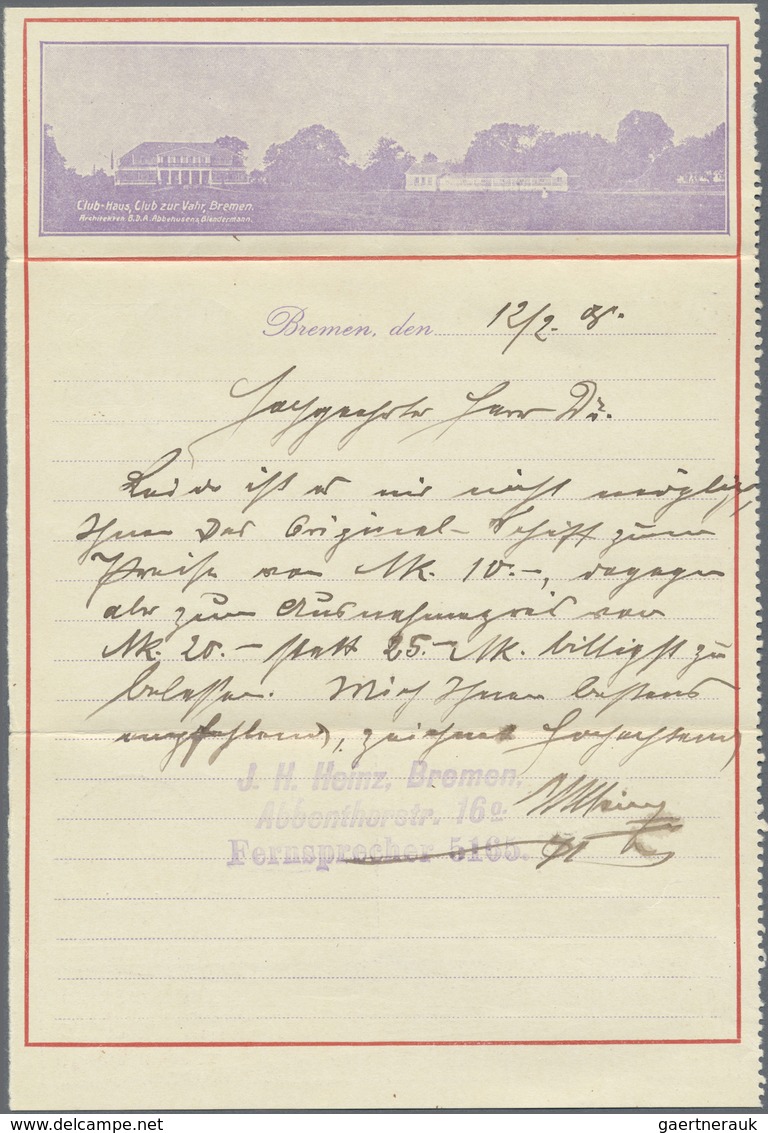 Club-Haus, Club zur Vahr, Bremen.
Architekten B.D.A. Abbehusen & Blendermann.
Bremen, den 12/2. 08.
Hochgeehrter Herr Dr.
Leider ist es mir nicht möglich,
Ihnen das Original-Schiff zum
Preise von Mk. 10.-, dagegen
aber zum Ausnahmepreis von
Mk. 20.- statt 25.- Mk. billigst zu
belassen. Mich Ihnen bestens
empfehlend, zeichnet hochachtend
J. H. Heinz, Bremen.
Abbenthorstr. 16a
Fernsprecher 5165.
www.delcampe.net
gaertnerauk